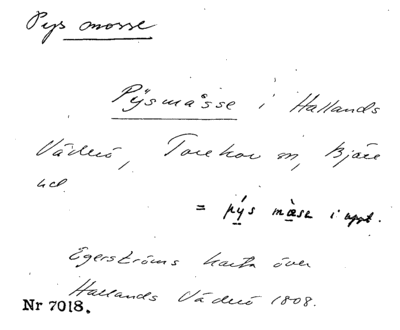 Pys mosse
Pÿsmåsse i Hallands
Väderö, Torekov sn, Bjäre
hd.
= pýs mɑ̀sːɛ i uppt.
Egerströms karta över
Hallands Väderö 1808.
Nr 7018.